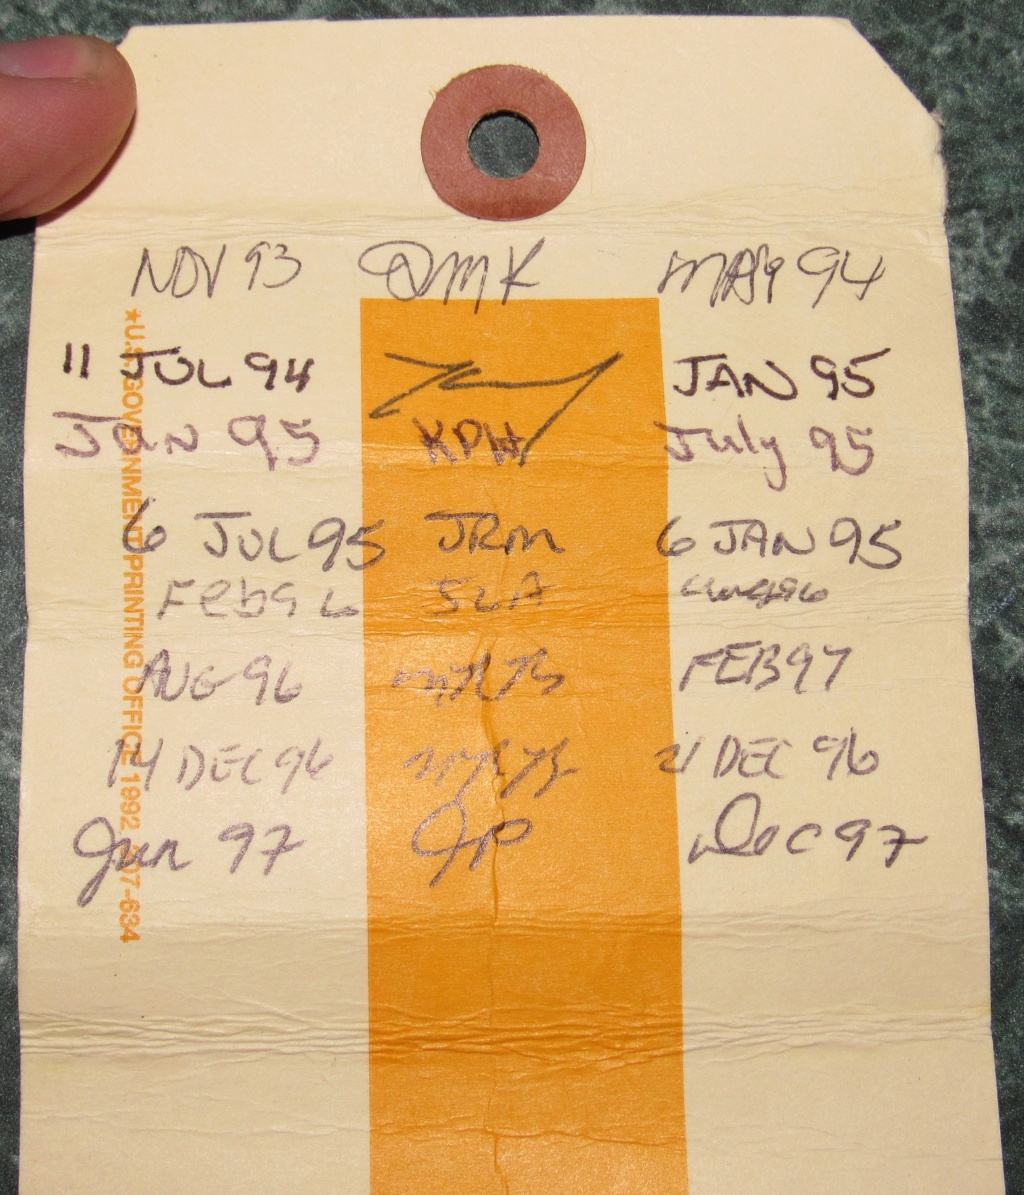 NOV 93 DMK MAY 94
11 JUL 94 JAN 95
Jan 95 KPH July 95
6 JUL 95 JRM 6 JAN 95
Feb 96 SLA
AUG 96 FEB 97
14 DEC 96 21 DEC 96
Jun 97 JP Dec 97
★U.S. GOVERNMENT PRINTING OFFICE 1992